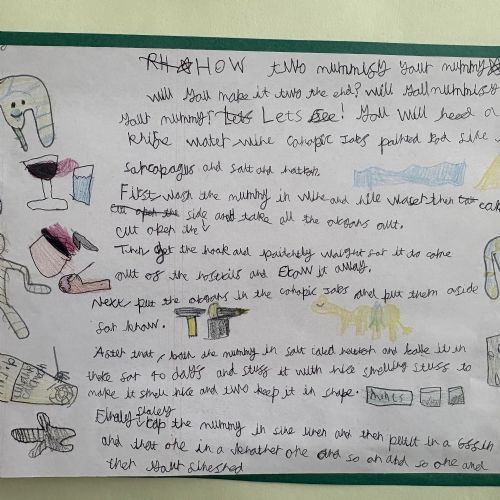 HOW two mummisy your mummy
will you make it two the end? will you mummisy
your mummy? Lets Lets See! You will need a
knife water wine canopic Jars painted God
sarcopagus and salt and natton.
First wash the mummy in wine and nile water then
cut open the side and take all the organs out.
Then get the hook and paitchely waight for it to come
out of the nostrils and throw it away.
Next put the organs in the canopic Jars and put them aside
for know.
After that, bath the mummy in salt caled natton and leave it in
there for 40 days and stuff it with nice smelling stuff to
make it smell nice and two keep it in shape.
Finaly the mummy in fine linen and then put it in a
and that one in a another one and so on and so one and
then your fineshed